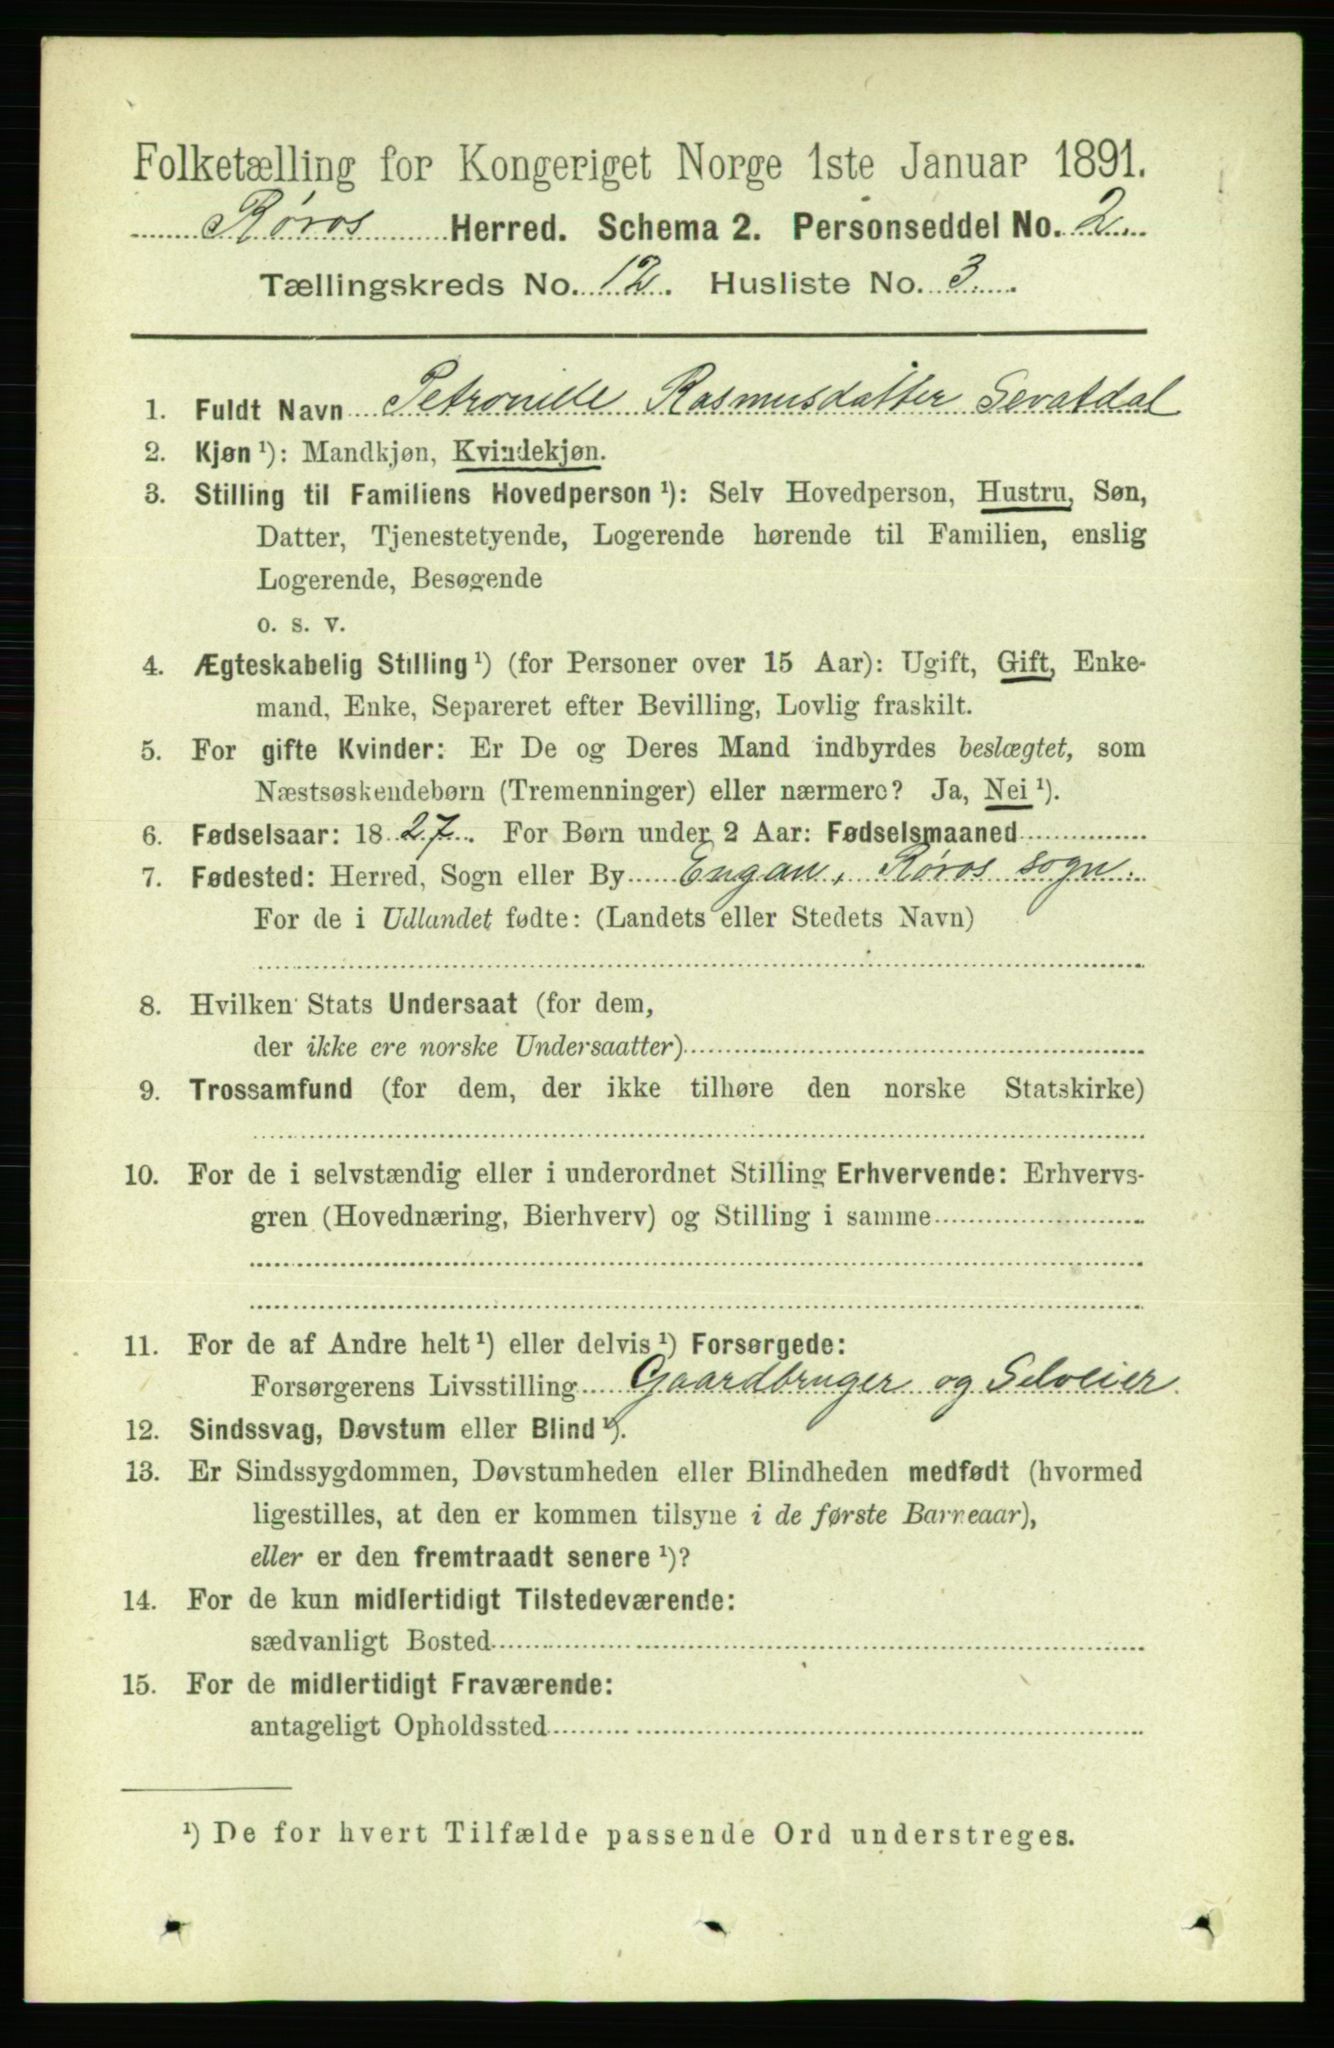 Folketælling for Kongeriget Norge 1ste Januar 1891.
Røros Herred. Schema 2. Personseddel No. 2
Tællingskreds No. 12. Husliste No. 3
1. Fuldt Navn Petronille Rasmusdatter Sevatdal
2. Kjøn ¹): Mandkjøn, Kvindekjøn.
3. Stilling til Familiens Hovedperson ¹): Selv Hovedperson, Hustru, Søn,
Datter, Tjenestetyende, Logerende hørende til Familien, enslig
Logerende, Besøgende
o. s. v.
4. Ægteskabelig Stilling ¹) (for Personer over 15 Aar): Ugift, Gift, Enke-
mand, Enke, Separeret efter Bevilling, Lovlig fraskilt.
5. For gifte Kvinder: Er De og Deres Mand indbyrdes beslægtet, som
Næstsøskendebørn (Tremenninger) eller nærmere? Ja, Nei ¹).
6. Fødselsaar: 1827. For Børn under 2 Aar: Fødselsmaaned
7. Fødested: Herred, Sogn eller By Engan, Røros sogn.
For de i Udlandet fødte: (Landets eller Stedets Navn)
8. Hvilken Stats Undersaat (for dem,
der ikke ere norske Undersaatter)
9. Trossamfund (for dem, der ikke tilhøre den norske Statskirke)
10. For de i selvstændig eller i underordnet Stilling Erhvervende: Erhvervs-
gren (Hovednæring, Bierhverv) og Stilling i samme
11. For de af Andre helt ¹) eller delvis ¹) Forsørgede:
Forsørgerens Livsstilling Gaardbruger og Selveier.
12. Sindssvag, Døvstum eller Blind ¹).
13. Er Sindssygdommen, Døvstumheden eller Blindheden medfødt (hvormed
ligestilles, at den er kommen tilsyne i de første Barneaar),
eller er den fremtraadt senere ¹)?
14. For de kun midlertidigt Tilstedeværende:
sædvanligt Bosted
15. For de midlertidigt Fraværende:
antageligt Opholdssted
¹) De for hvert Tilfælde passende Ord understreges.